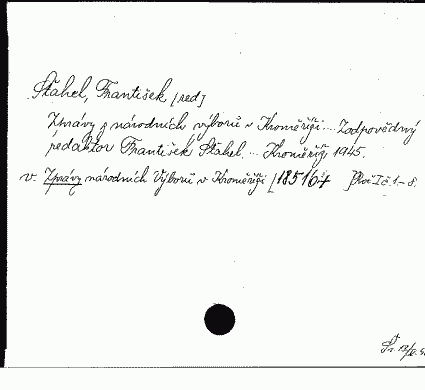 Štáhel, František [red]
Zprávy z národních výborů v Kroměříži.... Zodpovědný
redaktor František Štáhel.... Kroměříž, 1945.
v. Zprávy národních Výborů v Kroměříži [185164 Roč I č. 1-8.